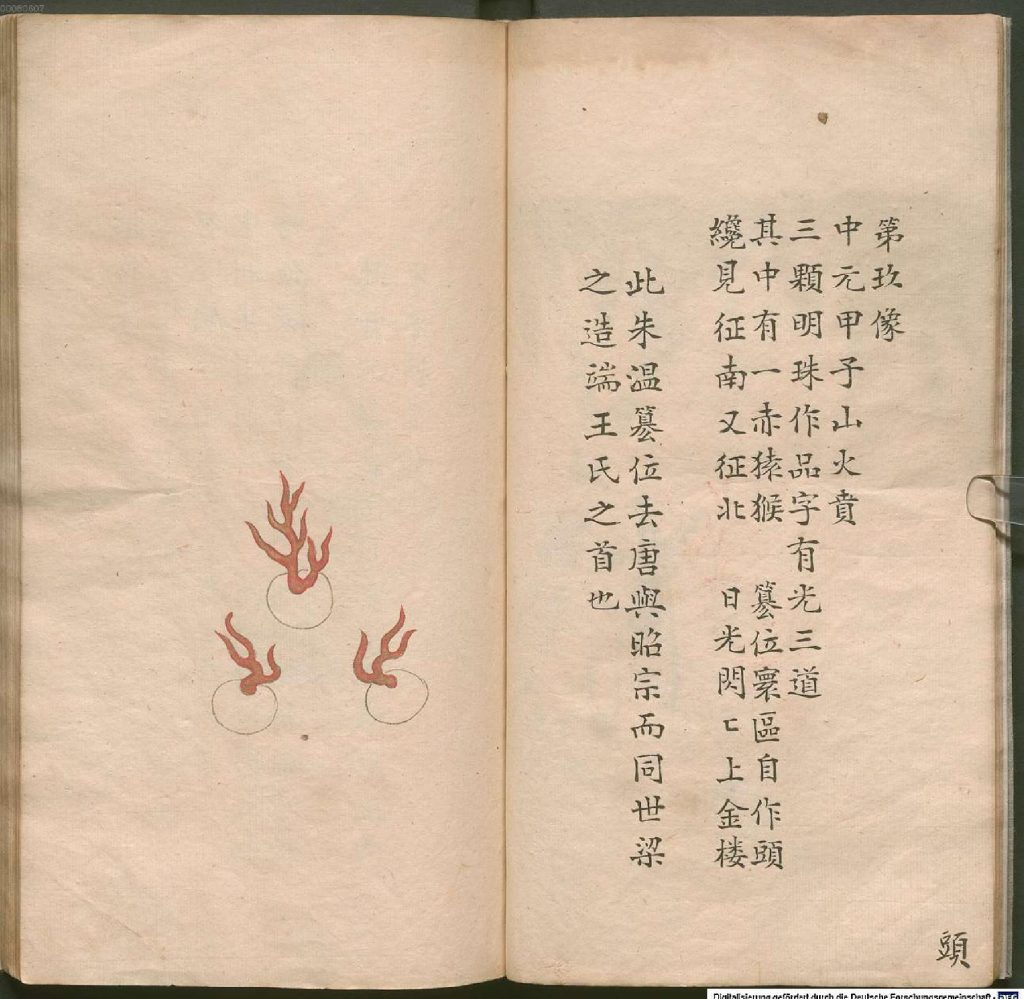 00060607
第玖像
中元甲子山火賁
三顆明珠作品字有光三道
其中有一赤猿猴　篡位寰區自作頭
纔見征南又征北　日光閃〻上金楼
此朱温篡位去唐與昭宗而同世梁
之造端王氏之首也
頭
Digitalisierung gefördert durch die Deutsche Forschungsgemeinschaft - DFG